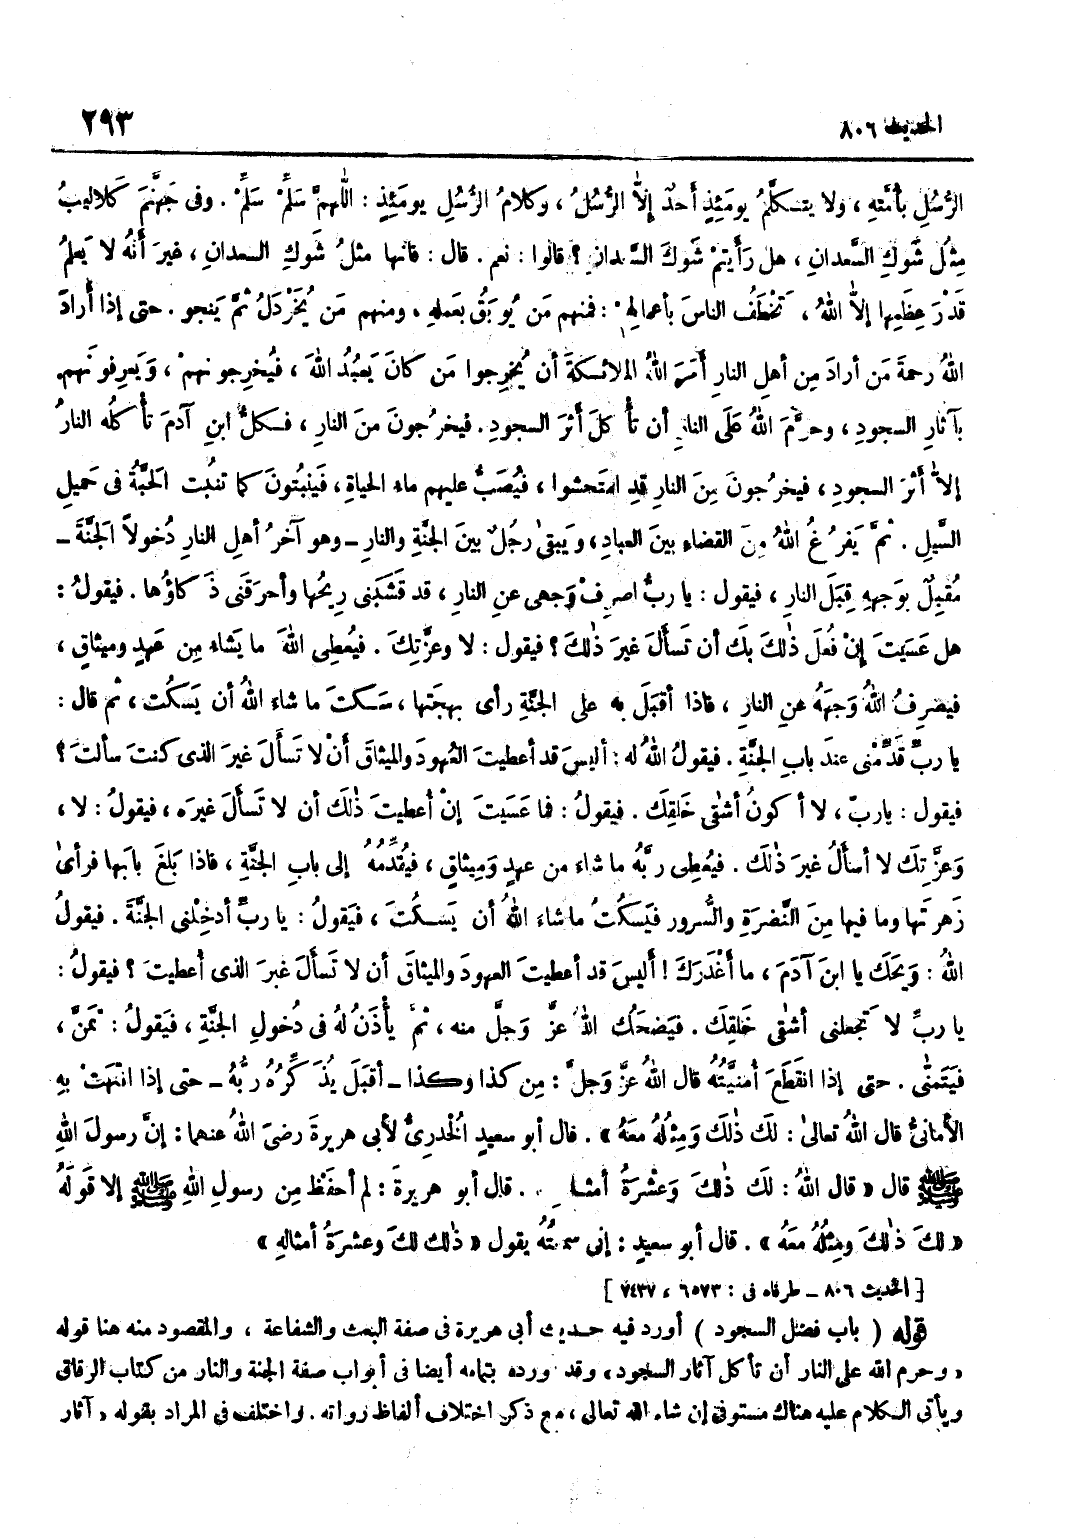 الحديث ٨٠٦
٢٩٣
الرُّسُلِ بأمَّتهِ ، ولا يتكلَّمُ يومَئِذٍ أحدٌ إلاَّ الرُّسُلُ ، وكلامُ الرُّسُلِ يومَئِذٍ : اللّهمَّ سَلِّمْ سَلِّمْ . وفى جَهنَّمَ كَلاليبُ
مِثلُ شَوكِ السَّعدانِ ، هل رَأيتمْ شَوكَ السَّعدانِ ؟ قالوا : نعم . قال : فانها مثلُ شَوكِ السعدانِ ، غيرَ أنَّهُ لا يَعلمُ
قَدْرَ عِظَمِها إلاَّ اللهُ ، تَخْطَفُ الناسَ بأعمالِهمْ : فمنهم مَن يُوبَقُ بعَملهِ ، ومنهم مَن يُخَرْدَلُ ثمَّ يَنجو . حتى إذا أرادَ
اللهُ رحمةَ مَن أرادَ مِن أهلِ النارِ أمَرَ اللهُ الملائكةَ أن يُخرِجوا مَن كانَ يَعبُدُ اللهَ ، فيُخرِجونهمْ ، وَيَعرِفونَهم
بآثارِ السجودِ ، وحرَّمَ اللهُ عَلَى النارِ أن تأكلَ أثرَ السجودِ . فيخرُجونَ منَ النارِ ، فكلُّ ابنِ آدمَ تأكلُه النارُ
إلاَّ أثرَ السجودِ ، فيخرُجونَ مِنَ النارِ قدِ امتَحشوا ، فيُصَبُّ عليهم ماء الحياةِ ، فَينبُتونَ كما تنبُت الحَبَّةُ فى حَميلِ
السَّيلِ . ثمَّ يَفرُغُ اللهُ مِنَ القضاءِ بينَ العبادِ ، ويَبقىٰ رجُلٌ بينَ الجنَّةِ والنارِ ــ وهو آخرُ أهلِ النارِ دُخولاً الجنَّةَ ــ
مُقبِلٌ بوَجههِ قِبَلَ النارِ ، فيقول : يا ربِّ اصرِفْ وَجهى عنِ النارِ ، قد قَشَبَنى رِيحُها وأحرَقَنى ذَكاؤُها . فيقولُ :
هل عَسَيتَ إنْ فُعلَ ذٰلكَ بكَ أن تَسألَ غيرَ ذٰلكَ ؟ فيقول : لا وعزَّتِكَ . فيُعطِى اللهَ ما يَشاء مِن عَهدٍ وميثاقٍ ،
فيَصرِفُ اللهُ وَجهَهُ عنِ النارِ ، فاذا أقبَلَ بهِ على الجنَّةِ رأى بهجتَها ، سَكتَ ما شاءَ اللهُ أن يَسكُت ، ثم قال :
يا ربِّ قَدِّمْنى عندَ بابِ الجنَّةِ . فيقولُ اللهُ له : أليسَ قد أعطيتَ العُهودَ والميثاقَ أنْ لا تَسألَ غيرَ الذى كنتَ سألتَ ؟
فيقول : ياربّ ، لا أكونُ أشقى خَلقِكَ . فيقولُ : فما عَسَيتَ إنْ أعطيتَ ذٰلكَ أن لا تَسألَ غيرَه ، فيقولُ : لا ،
وَعزَّتِكَ لا أسألُ غيرَ ذٰلكَ . فيُعطِى ربَّهُ ما شاء من عهدٍ وَمِيثاقٍ ، فيُقدِّمُهُ إلى بابِ الجنَّةِ ، فاذا بَلغَ بابَها فرأىٰ
زَهرتَها وما فيها مِنَ النَّضرَةِ والسُّرورِ فيَسكُتُ ما شاءَ اللهُ أن يَسكُتَ ، فيَقولُ : يا ربِّ أدخِلْنى الجنَّةَ . فيقولُ
اللهُ : وَيحَكَ يا ابنَ آدَمَ ، ما أغْدَرَكَ ! أليسَ قد أعطيتَ العهودَ والميثاقَ أن لا تَسألَ غيرَ الذى أُعطيتَ ؟ فيقولُ :
يا ربِّ لا تَجعلنى أشقى خَلقِكَ . فيَضحَكُ اللهُ عزَّ وَجلَّ منه ، ثمَّ يأْذَنُ لهُ فى دُخولِ الجنَّةِ ، فيَقولُ : تمنَّ ،
فيَتَمنَّى . حتى إذا انقَطَعَ أمنيَّتُهُ قال اللهُ عزَّ وَجلَّ : مِن كذا وكذا ــ أقبَلَ يُذَكِّرُهُ ربُّهُ ــ حتى إذا انتهَتْ بهِ
الأمانىُّ قال اللهُ تعالىٰ : لكَ ذٰلكَ وَمِثلُهُ معَهُ » . قال أبو سعيدٍ الخدرىُّ لأبى هريرةَ رضىَ اللهُ عنهما : إنَّ رسولَ اللهِ
ﷺ قال « قال اللهُ : لكَ ذٰلكَ وَعَشْرَةُ أمثا . . قال أبو هريرةَ : لم أحفَظْ مِن رسولِ اللهِ ﷺ إلا قَولَهُ
« لكَ ذٰلكَ ومِثلُهُ معَهُ » . قال أبو سعيدٍ : إنى سمعتُهُ يقول « ذٰلك لكَ وعشرَةُ أمثالهِ »
[ الحديث ٨٠٦ ــ طرفاه فى : ٦٥٧٣ ، ٧٤٣٧ ]
قوله ( باب فضل السجود ) أورد فيه حديث أبى هريرة فى صفة البعث والشفاعة ، والمقصود منه هنا قوله
« وحرم الله على النار أن تأكل آثار السجود » وقد ورده بتمامه أيضا فى أبواب صفة الجنة والنار من كتاب الرقاق
ويأتى الكلام عليه هناك مستوفى إن شاء الله تعالى ، مع ذكر اختلاف ألفاظ رواته . واختلف فى المراد بقوله « آثار